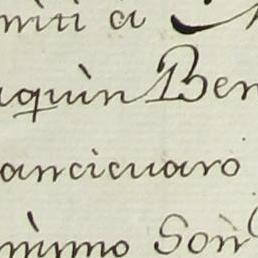 miti à
aquìn Ber
ancicuaro
nìmo Son